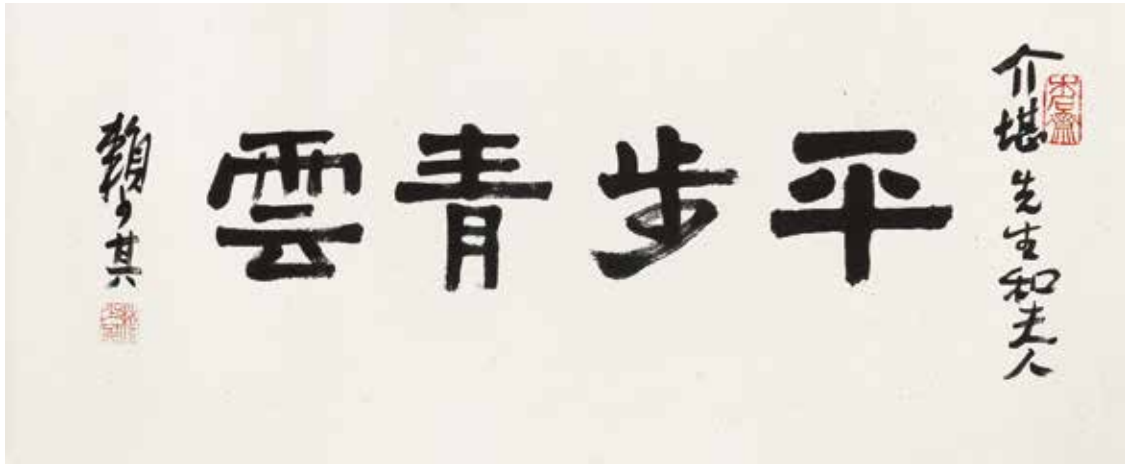 介堪先生和夫人
平步青雲
賴少其